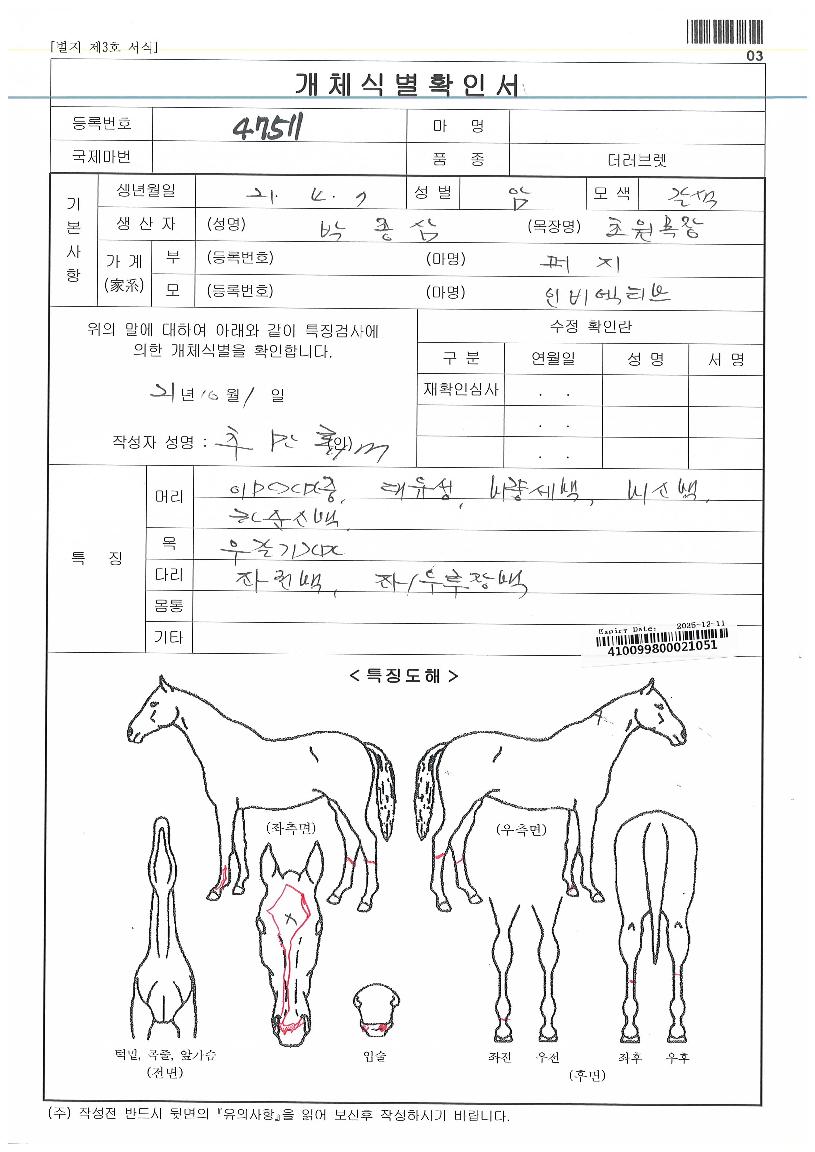 「별지 제3호 서식」
03
개체식별확인서
등록번호 47511 마 명
국제마번 품 종 더러브렛
기본사항
생년월일 21. 4. 7 성 별 암 모 색 갈색
생 산 자 (성명) 박종삼 (목장명) 초원목장
가 계 (家系) 부 (등록번호) (마명) 페 지
모 (등록번호) (마명) 인비액티브
위의 말에 대하여 아래와 같이 특징검사에
의한 개체식별을 확인합니다.
21년 10월 1일
작성자 성명 : 추 (인)
수정 확인란
구 분 연월일 성 명 서 명
재확인심사 . .
. .
. .
특 징
머리 대유성, 비량세백, 비신백,
하순신백
목
다리 좌전백, 좌/우후장백
몸통
기타
Expiry Date: 2025-12-11
410099800021051
< 특징도해 >
(좌측면) (우측면)
턱밑, 목줄, 앞가슴
(전면)
입술
좌전 우전 좌후 우후
(후면)
(수) 작성전 반드시 뒷면의 『유의사항』을 읽어 보신후 작성하시기 바랍니다.